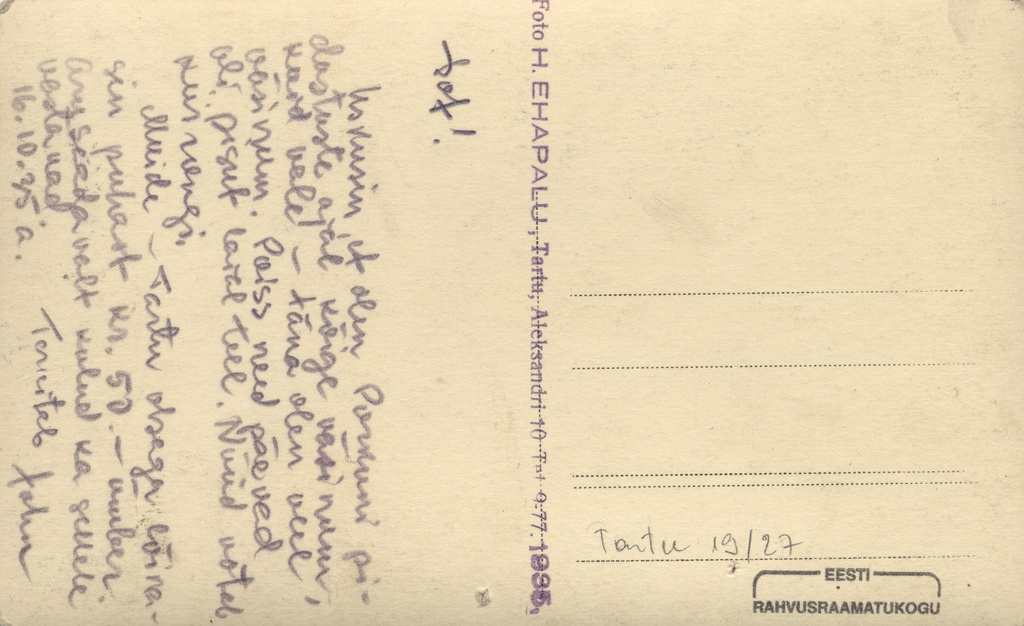 Tof!
Uskusin et olen Porkuni pi-
dustuste ajal kõige väsinum,
kuid vale! – täna olen veel
väsinum. Poiss need päevad
oli pisut laial teel. Nüüd võtab
kui rongi.
Muide – Tartu otsaga lõika-
sin puhast kr. 50.– umber
arvestada valt kulud ka sellele
vastavad
16.10.35 a. Tervitab John
Foto H. EHAPALU, Tartu, Aleksandri 10 Tel 9-77. 1935.
Tartu 19/27
EESTI
RAHVUSRAAMATUKOGU